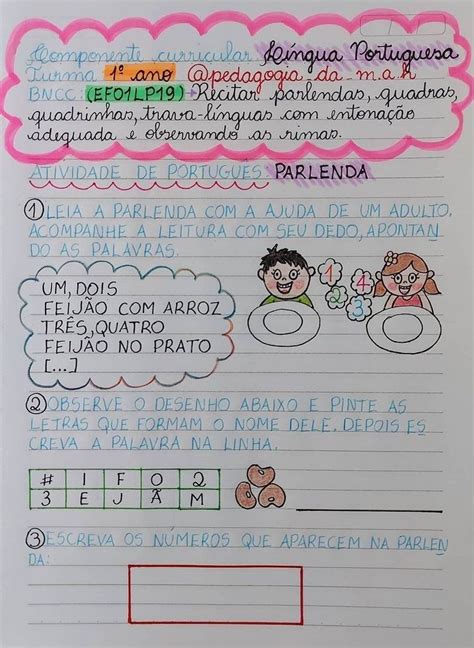 Componente curricular Língua Portuguesa
Turma 1º ano @pedagogia_da_m.a.h
BNCC: (EF01LP19) Recitar parlendas, quadras,
quadrinhas, trava-línguas com entonação
adequada e observando as rimas.
ATIVIDADE DE PORTUGUÊS: PARLENDA
① LEIA A PARLENDA COM A AJUDA DE UM ADULTO.
ACOMPANHE A LEITURA COM SEU DEDO, APONTAN
DO AS PALAVRAS.
UM, DOIS
FEIJÃO COM ARROZ
TRÊS, QUATRO
FEIJÃO NO PRATO
[...]
1 4
2 3
② OBSERVE O DESENHO ABAIXO E PINTE AS
LETRAS QUE FORMAM O NOME DELE. DEPOIS ES
CREVA A PALAVRA NA LINHA.
# I F O 2
3 E J Ã M
③ ESCREVA OS NÚMEROS QUE APARECEM NA PARLEN
DA: